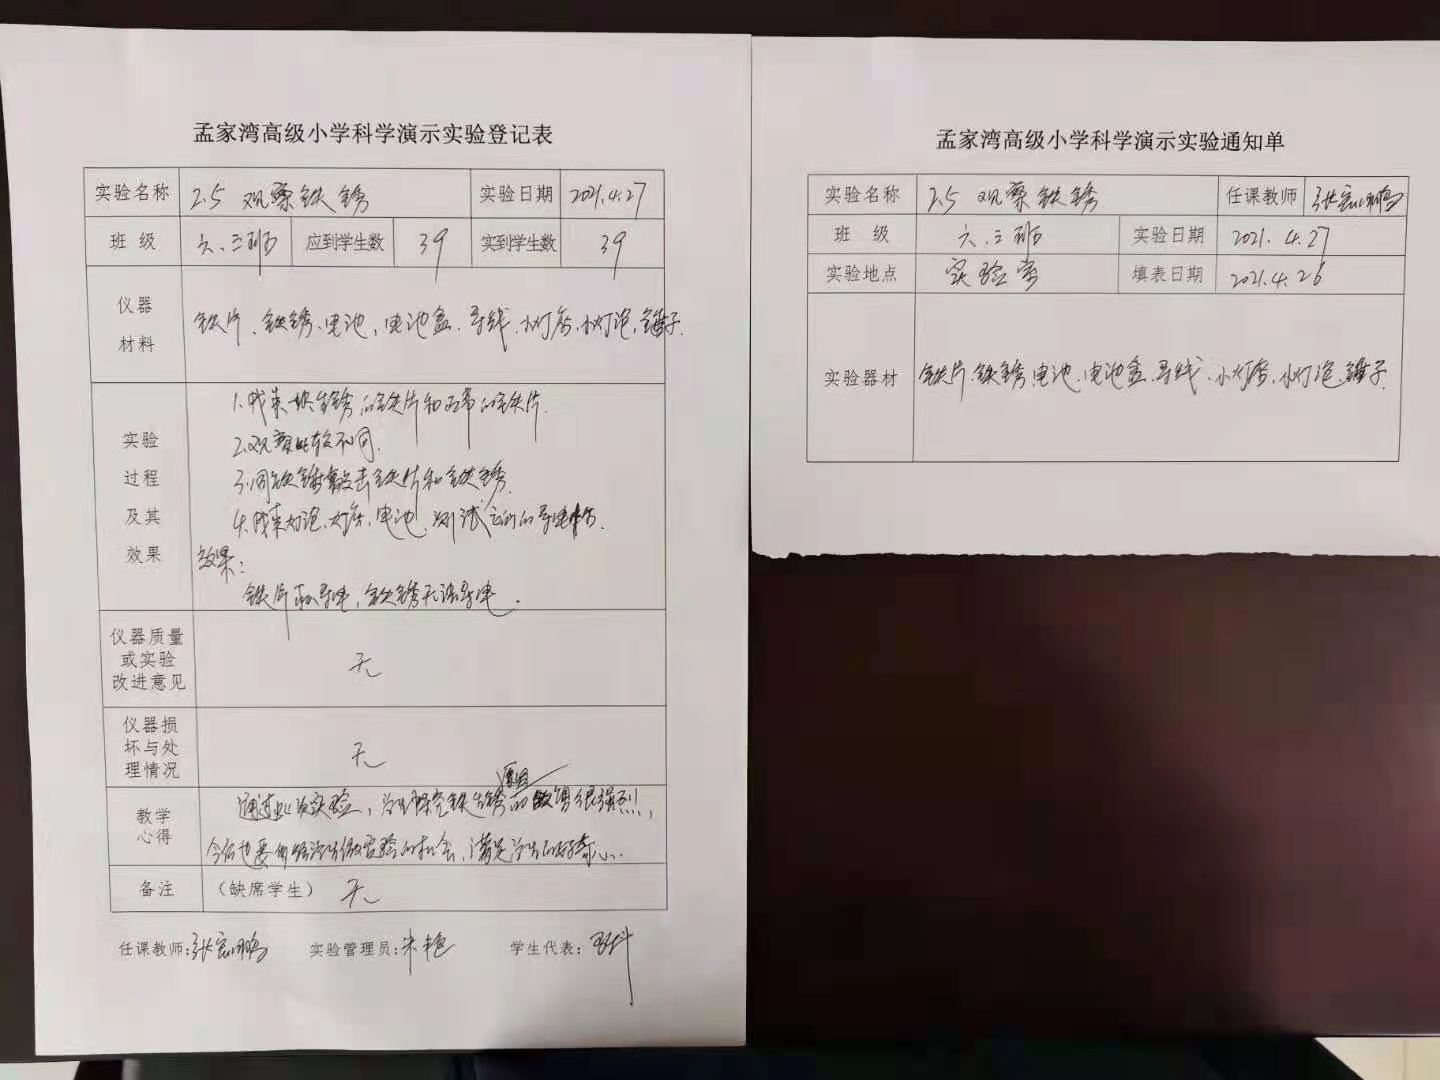 孟家湾高级小学科学演示实验登记表
实验名称 2.5 观察铁锈 实验日期 2021.4.27
班 级 六.三班 应到学生数 39 实到学生数 39
仪器
材料
铁片、铁锈、电池、电池盒、导线、小灯座、小灯泡、锤子.
实验
过程
及其
效果
1.找来一块生锈的铁片和正常的铁片
2.观察比较不同.
3.用铁锤敲击铁片和铁锈.
4.找来灯泡、灯座、电池、测试它们的导电
效果:
铁片 导电,铁锈无法导电.
仪器质量
或实验
改进意见
无
仪器损
坏与处
理情况
无
教学
心得
通过此次实验,学生探究铁生锈原因的 很强烈,
今后也要多给学生做实验的机会,满足学生的好奇心.
备注 (缺席学生) 无
任课教师: 张 鹏 实验管理员:朱艳 学生代表:
孟家湾高级小学科学演示实验通知单
实验名称 2.5 观察铁锈 任课教师 张 鹏
班 级 六.三班 实验日期 2021.4.27
实验地点 实验室 填表日期 2021.4.26
实验器材 铁片.铁锈.电池、电池盒.导线、小灯座、小灯泡、锤子.